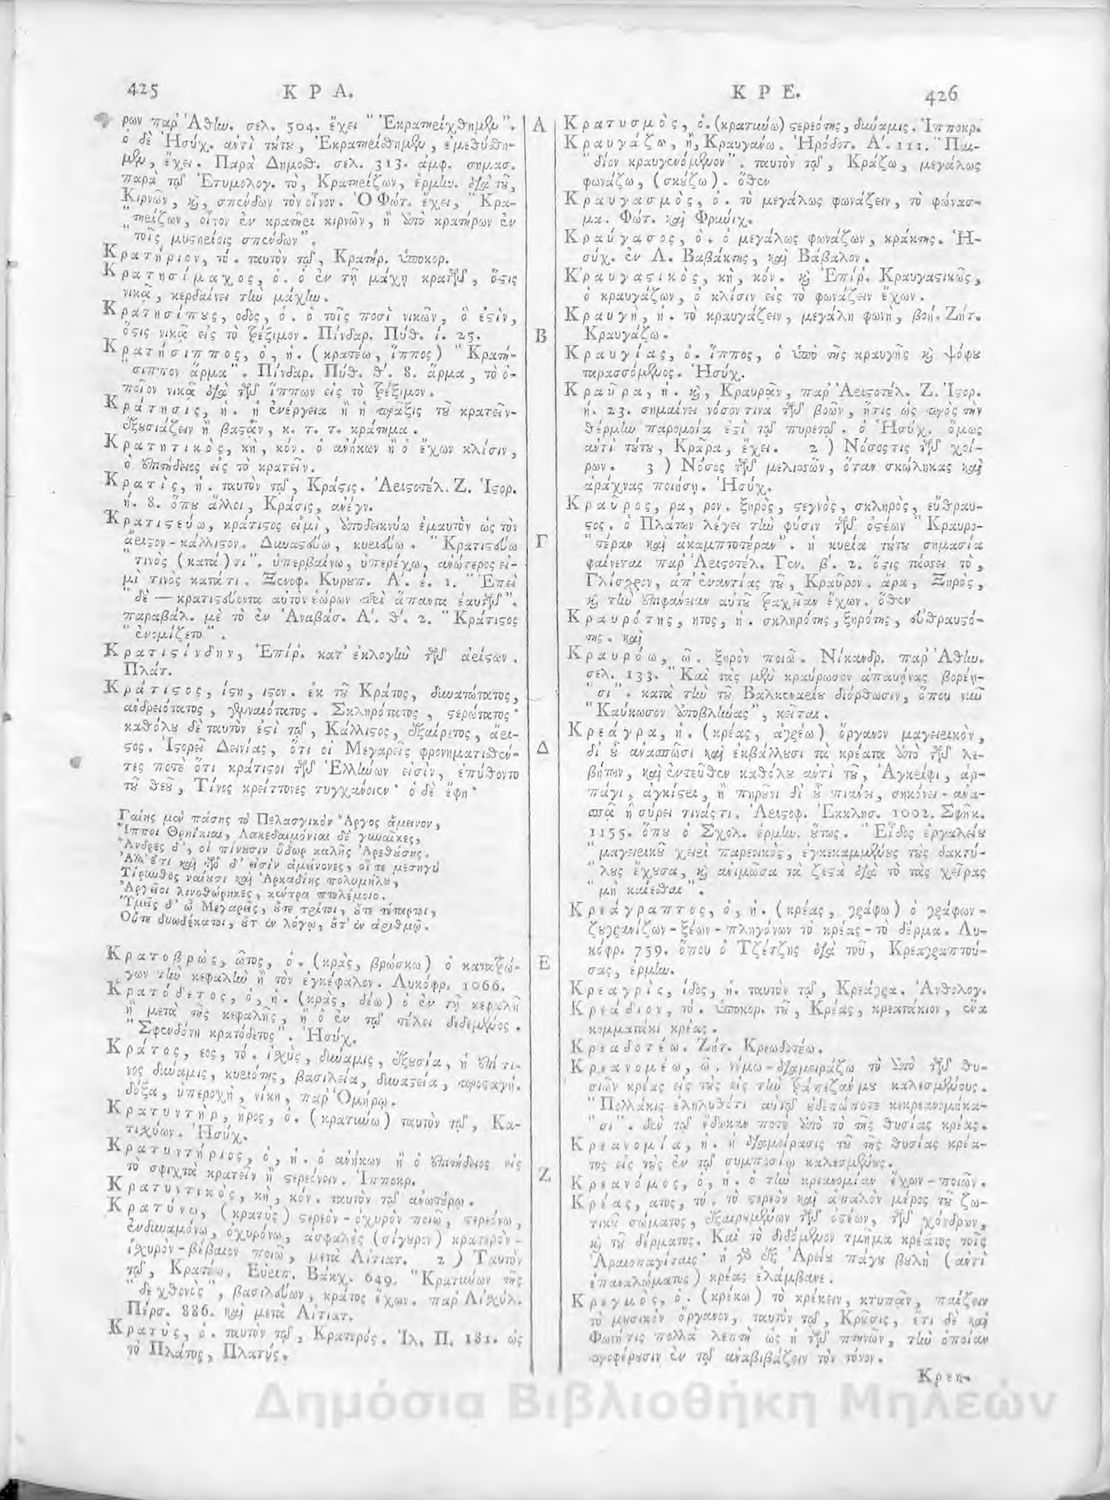 425 ΚΡΑ.
ρων παρ' Ἀθην. σελ. 504. ἔχει "Ἐκρατηρίχθημεν".
ὁ δὲ Ἡσύχ. ἀντὶ τούτου, Ἐκρατηρίσθημεν, ἐμεθύσθη-
μεν, ἔχει. Παρὰ Δημοσθ. σελ. 313. ἀμφ. σημασ.
παρὰ τῷ Ἐτυμολογ. τὸ, Κρατηρίζων, ἑρμην. διὰ τοῦ,
Κιρνῶν, καὶ, σπένδων τὸν οἶνον. Ὁ Φώτ. ἔχει, "Κρα-
"τηρίζων, οἶνον ἐν κρατῆρι κιρνῶν, ἢ ἀπὸ κρατήρων ἐν
"τοῖς μυστηρίοις σπένδων".
Κρατήριον, τό. ταυτὸν τῷ, Κρατήρ. ὑποκορ.
Κρατησίμαχος, ὁ. ὁ ἐν τῇ μάχῃ κρατῶν, ὅστις
νικᾷ, κερδαίνει τὴν μάχην.
Κρατησίπους, οδος, ὁ. ὁ τοῖς ποσὶ νικῶν, ὅ ἐστιν,
ὅστις νικᾷ εἰς τὸ τρέξιμον. Πίνδαρ. Πυθ. ί. 25.
Κρατήσιππος, ὁ, ἡ. (κρατέω, ἵππος) "Κρατή-
"σιππον ἅρμα". Πίνδαρ. Πυθ. θ'. 8. ἅρμα, τὸ ὁ-
ποῖον νικᾷ διὰ τῶν ἵππων εἰς τὸ τρέξιμον.
Κράτησις, ἡ. ἡ ἐνέργεια ἢ ἡ πρᾶξις τοῦ κρατεῖν-
ἐξουσιάζειν ἢ βαστᾶν, κ. τ. τ. κράτημα.
Κρατητικὸς, κὴ, κόν. ὁ ἀνήκων ἢ ὁ ἔχων κλίσιν,
ὁ ἐπιτήδειος εἰς τὸ κρατεῖν.
Κρατὶς, ἡ. ταυτὸν τῷ, Κράστις. Ἀριστοτέλ. Ζ. Ἱστορ.
ή. 8. ὅπου ἄλλοι, Κράσις, ἀνέγν.
Κρατιστεύω, κράτιστος εἰμὶ, ἀποδεικνύω ἐμαυτὸν ὡς τὸν
ἄριστον - κάλλιστον. Δυναστεύω, κυριεύω. "Κρατιστεύω
"τινὸς (κατά) τι". ὑπερβαίνω, ὑπερέχω, ἀνώτερος εἰ-
μὶ τινὸς κατά τι. Ξενοφ. Κυροπ. Α'. έ. 1. "Ἐπεὶ
"δὲ — κρατιστεύοντα αὐτὸν ἑώρων διὰ ἅπαντα ἑαυτῶν".
παραβάλ. μὲ τὸ ἐν Ἀναβάσ. Α'. θ'. 2. "Κράτιστος
"ἐνομίζετο".
Κρατιστίνδην, Ἐπίρ. κατ' ἐκλογὴν τῶν ἀρίστων.
Πλάτ.
Κράτιστος, ίστη, ιστον. ἐκ τοῦ Κράτος, δυνατώτατος,
ἀνδρειότατος, γενναιότατος. Σκληρότατος, στερώτατος·
καθόλου δὲ ταυτὸν ἐστὶ τῷ, Κάλλιστος, ἐξαίρετος, ἄρι-
στος. Ἱστορεῖ Δεινίας, ὅτι οἱ Μεγαρεῖς φρονηματισθέν-
τες ποτὲ ὅτι κράτιστοι τῶν Ἑλλήνων εἰσὶν, ἐπύθοντο
τοῦ θεοῦ, Τίνες κρείττονες τυγχάνοιεν· ὁ δὲ ἔφη·
Γαίης μὲν πάσης τὸ Πελασγικὸν Ἄργος ἄμεινον,
Ἵπποι Θρηΐκιαι, Λακεδαιμόνιαι δὲ γυναῖκες,
Ἄνδρες δ', οἳ πίνουσιν ὕδωρ καλῆς Ἀρεθούσης.
Ἀλλ' ἔτι καὶ τῶν δ' εἰσὶν ἀμείνονες, οἵ τε μεσηγὺ
Τίρυνθος ναίουσι καὶ Ἀρκαδίης πολυμήλου,
Ἀργεῖοι λινοθώρηκες, κέντρα πτολέμοιο.
Ὑμεῖς δ' ὦ Μεγαρεῖς, οὔτε τρίτοι, οὔτε τέταρτοι,
Οὔτε δυωδέκατοι, οὔτ' ἐν λόγῳ, οὔτ' ἐν ἀριθμῷ.
Κρατοβρὼς, ῶτος, ὁ. (κρὰς, βρώσκω) ὁ κατατρώ-
γων τὴν κεφαλὴν ἢ τὸν ἐγκέφαλον. Λυκόφρ. 1066.
Κρατόδετος, ὁ, ἡ. (κρὰς, δέω) ὁ ἐν τῇ κεφαλῇ
ἢ μετὰ τῆς κεφαλῆς, ἢ ὁ ἐν τῷ τέλει δεδεμένος.
"Σφενδόνη κρατόδετος". Ἡσύχ.
Κράτος, εος, τό. ἰσχὺς, δύναμις, ἐξουσία, ἡ ἐπί τι-
νος δύναμις, κυριότης, βασιλεία, δυναστεία, προσταγή.
δόξα, ὑπεροχὴ, νίκη, παρ' Ὁμήρῳ.
Κρατυντὴρ, ῆρος, ὁ. (κρατύνω) ταυτὸν τῷ, Κα-
τισχύων. Ἡσύχ.
Κρατυντήριος, ὁ, ἡ. ὁ ἀνήκων ἢ ὁ ἐπιτήδειος εἰς
τὸ σφιχτὰ κρατεῖν ἢ στερεόνειν. Ἱπποκρ.
Κρατυντικὸς, κὴ, κόν. ταυτὸν τῷ ἀνωτέρῳ.
Κρατύνω, (κρατὺς) στερεὸν - ὀχυρὸν ποιῶ, στερεόνω,
ἐνδυναμόνω, ὀχυρόνω, ἀσφαλὲς (σίγουρον) κρατερὸν -
ἰσχυρὸν - βέβαιον ποιῶ, μετὰ Αἰτιατ. 2) Ταυτὸν
τῷ, Κρατέω. Εὐριπ. Βάκχ. 649. "Κρατύνων τῆς
"δὲ χθονὸς", βασιλεύων, κράτος ἔχων. παρ' Αἰσχύλ.
Πέρσ. 886. καὶ μετὰ Αἰτιατ.
Κρατὺς, ὁ. ταυτὸν τῷ, Κρατερός. Ἰλ. Π. 181. ὡς
τὸ Πλάτος, Πλατύς.
Α
Β
Γ
Δ
Ε
Ζ
ΚΡΕ. 426
Κρατυσμὸς, ὁ. (κρατύνω) στερεότης, δύναμις. Ἱπποκρ.
Κραυγάζω, ἢ, Κραυγάνω. Ἡρόδοτ. Α'. 111. "Παι-
"δίον κραυγανόμενον". ταυτὸν τῷ, Κράζω, μεγάλως
φωνάζω, (σκούζω). ὅθεν
Κραυγασμὸς, ὁ. τὸ μεγάλως φωνάζειν, τὸ φώνασ-
μα. Φώτ. καὶ Φρύνιχ.
Κραύγασος, ὁ. ὁ μεγάλως φωνάζων, κράκτης. Ἡ-
σύχ. ἐν Λ. Βαβάκτης, καὶ Βάβαλον.
Κραυγαστικὸς, κὴ, κόν. καὶ Ἐπίρ. Κραυγαστικῶς,
ὁ κραυγάζων, ὁ κλίσιν εἰς τὸ φωνάζειν ἔχων.
Κραυγὴ, ἡ. τὸ κραυγάζειν, μεγάλη φωνὴ, βοή. Ζήτ.
Κραυγάζω.
Κραυγίας, ὁ. ἵππος, ὁ ὑπὸ τῆς κραυγῆς καὶ ψόφου
ταρασσόμενος. Ἡσύχ.
Κραῦρα, ἡ. καὶ, Κραυρᾶν, παρ' Ἀριστοτέλ. Ζ. Ἱστορ.
ή. 23. σημαίνει νόσον τινα τῶν βοῶν, ἥτις ὡς πρὸς τὴν
θέρμην παρομοία ἐστὶ τῷ πυρετῷ. ὁ Ἡσύχ. ὅμως
ἀντὶ τούτου, Κρᾶρα, ἔχει. 2) Νόσος τις τῶν χοί-
ρων. 3) Νόσος τῶν μελισσῶν, ὅταν σκώληκας καὶ
ἀράχνας ποιήσῃ. Ἡσύχ.
Κραῦρος, ρα, ρον. ξηρὸς, στεγνὸς, σκληρὸς, εὔθραυ-
στος. ὁ Πλάτων λέγει τὴν φύσιν τῶν ὀστέων "Κραυρο-
"τέραν καὶ ἀκαμπτοτέραν". ἡ κυρία τούτου σημασία
φαίνεται παρ' Ἀριστοτέλ. Γεν. β'. 2. ὅστις παίρει τὸ,
Γλίσχρον, ἀπ' ἐναντίας τοῦ, Κραῦρον. ἄρα, Ξηρὸς,
καὶ τὴν ἐπιφάνειαν αὐτοῦ τραχεῖαν ἔχων. ὅθεν
Κραυρότης, ητος, ἡ. σκληρότης, ξηρότης, εὐθραυστό-
της. καὶ
Κραυρόω, ῶ. ξηρὸν ποιῶ. Νίκανδρ. παρ' Ἀθην.
σελ. 133. "Καὶ τὰς μὲν κραύρωσον ἀπαυήνας βορέη-
"σι". κατὰ τὴν τοῦ Βαλκεναρίου διόρθωσιν, ὅπου νῦν
"Καύκωσον ὑποβλίηνας", κεῖται.
Κρεάγρα, ἡ. (κρέας, ἀγρέω) ὄργανον μαγειρικὸν,
δι' οὗ ἀνασπῶσι καὶ ἐκβάλλουσι τὰ κρέατα ἀπὸ τῶν λε-
βήτων, καὶ ἐντεῦθεν καθόλου ἀντὶ τοῦ, Ἀγκρίφι, ἁρ-
πάγι, ἀγκίστρι, ἢ πηρῦνι δι' οὗ πιάνει, σηκόνει - ἀνα-
σπᾷ ἢ σύρει τινάς τι. Ἀριστοφ. Ἐκκλησ. 1002. Σφηκ.
1155. ὅπου ὁ Σχολ. ἑρμην. οὕτως. "Εἶδος ἐργαλείου
"μαγειρικοῦ χειρὶ παρεοικὸς, ἐγκεκαμμένους τοὺς δακτύ-
"λους ἔχουσα, καὶ ἀνιμῶσα τὰ ζεστὰ διὰ τὸ τὰς χεῖρας
"μὴ καίεσθαι".
Κρεάγραπτος, ὁ, ἡ. (κρέας, γράφω) ὁ γράφων -
ζωγρανίζων - ξέων - πληγόνων τὸ κρέας - τὸ δέρμα. Λυ-
κόφρ. 759. ὅπου ὁ Τζέτζης διὰ τοῦ, Κρεαγραπτού-
σας, ἑρμην.
Κρεαγρὶς, ίδος, ἡ. ταυτὸν τῷ, Κρεάγρα. Ἀνθολογ.
Κρεάδιον, τό. ὑποκορ. τοῦ, Κρέας, κρεατάκιον, ἕνα
κομματάκι κρέας.
Κρεαδοτέω. Ζήτ. Κρεωδοτέω.
Κρεανομέω, ῶ. νέμω - διαμειράζω τὸ ἀπὸ τῶν θυ-
σιῶν κρέας εἰς τοὺς εἰς τὴν τράπεζάν μου καλεσμένους.
"Πολλάκις ἐληλυθότι αὐτῷ οὐδεπώποτε κεκρεανομήκα-
"σι". δὲν τῷ ἔδωκαν ποτὲ ἀπὸ τὸ τῆς θυσίας κρέας.
Κρεανομία, ἡ. ἡ διαμοίρασις τοῦ τῆς θυσίας κρέα-
τος εἰς τοὺς ἐν τῷ συμποσίῳ καλεσμένους.
Κρεανόμος, ὁ, ἡ. ὁ τὴν κρεανομίαν ἔχων - ποιῶν.
Κρέας, ατος, τό. τὸ στερεὸν καὶ ἁπαλὸν μέρος τοῦ ζω-
τικοῦ σώματος, ἐξαιρεμένων τῶν ὀστέων, τῶν χόνδρων,
καὶ τοῦ δέρματος. Καὶ τὸ διδόμενον τμῆμα κρέατος τοῖς
Ἀραιοπαγίταις· ἡ γὰρ ἐξ Ἀρείου πάγου βουλὴ (ἀντὶ
ἐπαναλώματος) κρέας ἐλάμβανε.
Κρεγμὸς, ὁ. (κρέκω) τὸ κρέκειν, κτυπᾶν, παίζειν
τὸ μουσικὸν ὄργανον, ταυτὸν τῷ, Κροῦσις, ἔτι δὲ καὶ
Φωνή τις πολλὰ λεπτὴ ὡς ἡ τῶν πτηνῶν, τὴν ὁποίαν
προφέρουσιν ἐν τῷ ἀναβιβάζειν τὸν τόνον.
Κρεη-
Δημόσια Βιβλιοθήκη Μηλεών